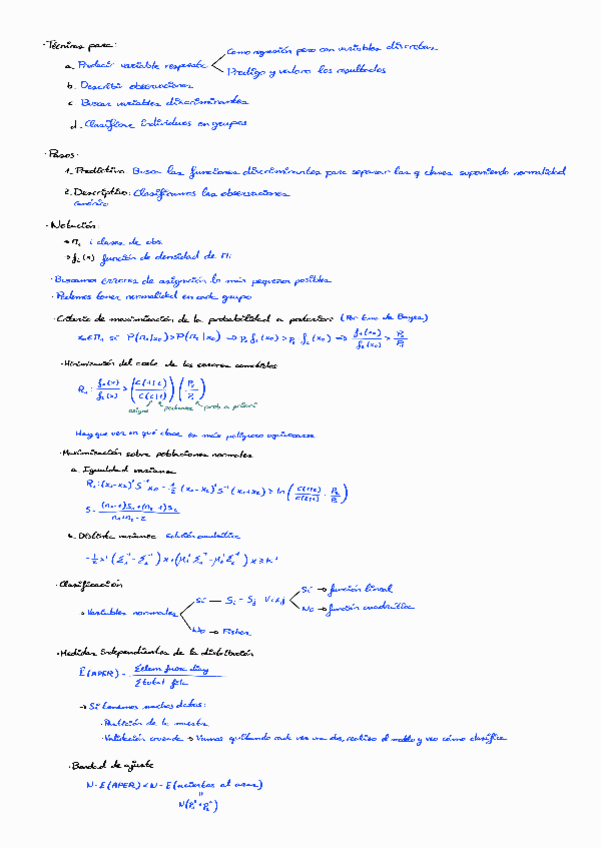 · Técnicas para:
a. Predecir variable respuesta
Como regresión pero con variables discretas
Predigo y valoro los resultados
b. Describir observaciones
c. Buscar variables discriminantes
d. Clasificar individuos en grupos
· Pasos:
1. Predictiva: Buscar las funciones discriminantes para separar las q clases suponiendo normalidad
2. Descriptivo: Clasificamos las observaciones
· Notación:
→ Πi i clases de obs
→ fi(x) función de densidad de Πi
· Buscamos errores de asignación lo más pequeños posibles
· Podemos tener normalidad en cada grupo
· Criterio de maximización de la probabilidad a posteriori (Por Tma de Bayes)
x₀∈Π₁ si P(Π₁|x₀) > P(Π₂|x₀) → P₁ f₁(x₀) > P₂ f₂(x₀) → f₁(x₀)/f₂(x₀) > P₂/P₁
· Minimización del coste de los errores cometidos
R₁: f₁(x)/f₂(x) > (C(1|2)/C(2|1)) (P₂/P₁)
asigno pertenece prob a priori
Hay que ver en qué clase es más peligroso equivocarse
· Maximización sobre poblaciones normales
a. Igualdad varianzas
S = (n₁-1)S₁+(n₂-1)S₂ / n₁+n₂-2
b. Distinta varianza solución cuadrática
· Clasificación
→ Variables normales
Sí — Si = Sj ∀i≠j
Sí → función lineal
No → función cuadrática
No → Fisher
· Medidas Independientes de la distribución
Ê(APER) = Σelem fuera diag / Σtotal
→ Si tenemos muchos datos:
· Partición de la muestra
· Validación cruzada → Vamos quitando cada vez un dato, realizo el modelo y veo cómo clasifica
· Bondad de ajuste
N·E(APER) < N - E(aciertos al azar)
N(P₁²+P₂²)